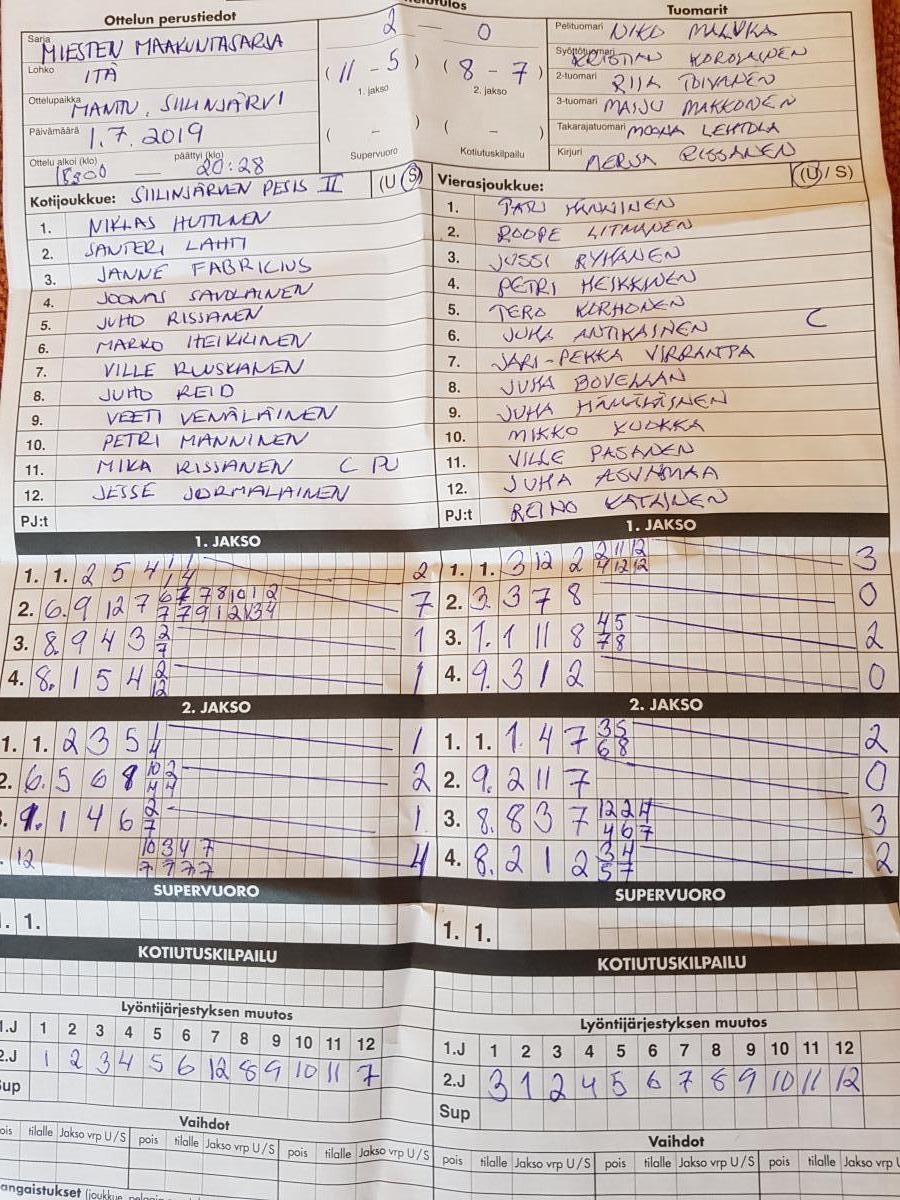 Ottelun perustiedot
Tuomarit
Sarja MIESTEN MAAKUNTASARJA
Lohko ITÄ
Ottelupaikka MANTU, SIILINJÄRVI
Päivämäärä 1.7.2019
Ottelu alkoi (klo) 18:00 — päättyi (klo) 20:28
2 — 0
(11 - 5) (8 - 7)
1. jakso 2. jakso
( - ) ( - )
Supervuoro Kotiutuskilpailu
Pelituomari NIKO
Syöttötuomari KRISTIAN
2-tuomari RIIA TOIVANEN
3-tuomari MAIJU MAKKONEN
Takarajatuomari MOONA LEHTOLA
Kirjuri MERJA RISSANEN
Kotijoukkue: SIILINJÄRVEN PESIS II (U S)
1. NIKLAS HUTTUNEN
2. SANTERI LAHTI
3. JANNE FABRICIUS
4. JOONAS SAVOLAINEN
5. JUHO RISSANEN
6. MARKO HEIKKINEN
7. VILLE RUUSKANEN
8. JUHO REID
9. VEETI VENÄLÄINEN
10. PETRI MANNINEN
11. MIKA RISSANEN C PJ
12. JESSE JORMALAINEN
PJ:t
Vierasjoukkue: (U / S)
1. PARI HÄNNINEN
2. ROOPE LITMANEN
3. JUSSI RYHÄNEN
4. PETRI HEIKKINEN
5. TERO KORHONEN
6. JUHA ANTIKAINEN C
7. JARI-PEKKA VIRRANTA
8. JUHA BOVELLAN
9. JUHA HÄMÄLÄINEN
10. MIKKO KUOKKA
11. VILLE PASANEN
12. JUHA ASUNMAA
PJ:t REINO KATAINEN
1. JAKSO
1. 1. 2 5 4 1 1 2
1 4
2. 6. 9 12 7 6 7 7 8 10 1 2 7
7 7 9 12 1 3 4
3. 8. 9 4 3 2 1
7
4. 8. 1 5 4 2 1
12
1. JAKSO
1. 1. 3 12 2 2 11 12 3
4 12 12
2. 3. 3 7 8 0
3. 1. 1 11 8 4 5 2
7 8
4. 9. 3 1 2 0
2. JAKSO
1. 1. 2 3 5 1 1
4
2. 6. 5 6 8 10 2 2
4 4
1. 1 4 6 2 1
7
12 10 3 4 7 4
7 7 7 7
2. JAKSO
1. 1. 1. 4 7 3 5 2
6 8
2. 9. 2 11 7 0
3. 8. 8 3 7 12 2 4 3
4 6 7
4. 8. 2 1 2 3 4 2
5 7
SUPERVUORO
1.
SUPERVUORO
1. 1.
KOTIUTUSKILPAILU
KOTIUTUSKILPAILU
Lyöntijärjestyksen muutos
1.J 1 2 3 4 5 6 7 8 9 10 11 12
2.J 1 2 3 4 5 6 12 8 9 10 11 7
Sup
Lyöntijärjestyksen muutos
1.J 1 2 3 4 5 6 7 8 9 10 11 12
2.J 3 1 2 4 5 6 7 8 9 10 11 12
Sup
Vaihdot
pois tilalle Jakso vrp U/S pois tilalle Jakso vrp U/S pois tilalle Jakso vrp U/S
Vaihdot
pois tilalle Jakso vrp U/S pois tilalle Jakso vrp U/S pois tilalle Jakso vrp